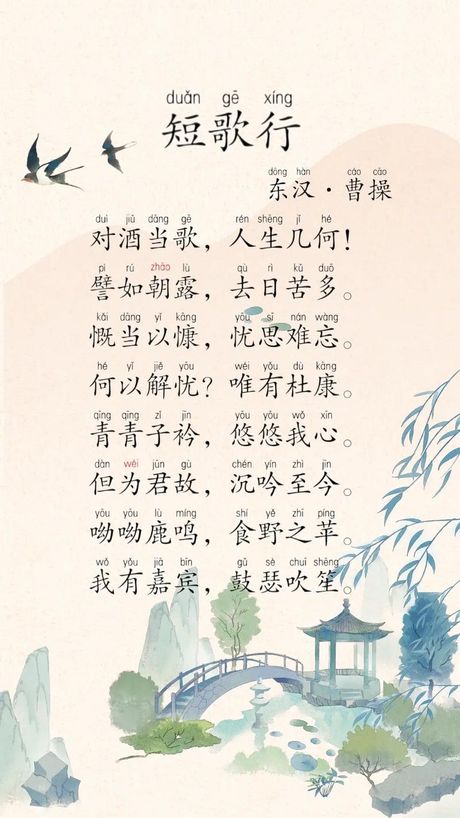 duǎn gē xíng
短歌行
dōng hàn cáo cāo
东汉·曹操
duì jiǔ dāng gē rén shēng jǐ hé
对酒当歌，人生几何！
pì rú zhāo lù qù rì kǔ duō
譬如朝露，去日苦多。
kǎi dāng yǐ kāng yōu sī nán wàng
慨当以慷，忧思难忘。
hé yǐ jiě yōu wéi yǒu dù kāng
何以解忧？唯有杜康。
qīng qīng zǐ jīn yōu yōu wǒ xīn
青青子衿，悠悠我心。
dàn wèi jūn gù chén yín zhì jīn
但为君故，沉吟至今。
yōu yōu lù míng shí yě zhī píng
呦呦鹿鸣，食野之苹。
wǒ yǒu jiā bīn gǔ sè chuī shēng
我有嘉宾，鼓瑟吹笙。